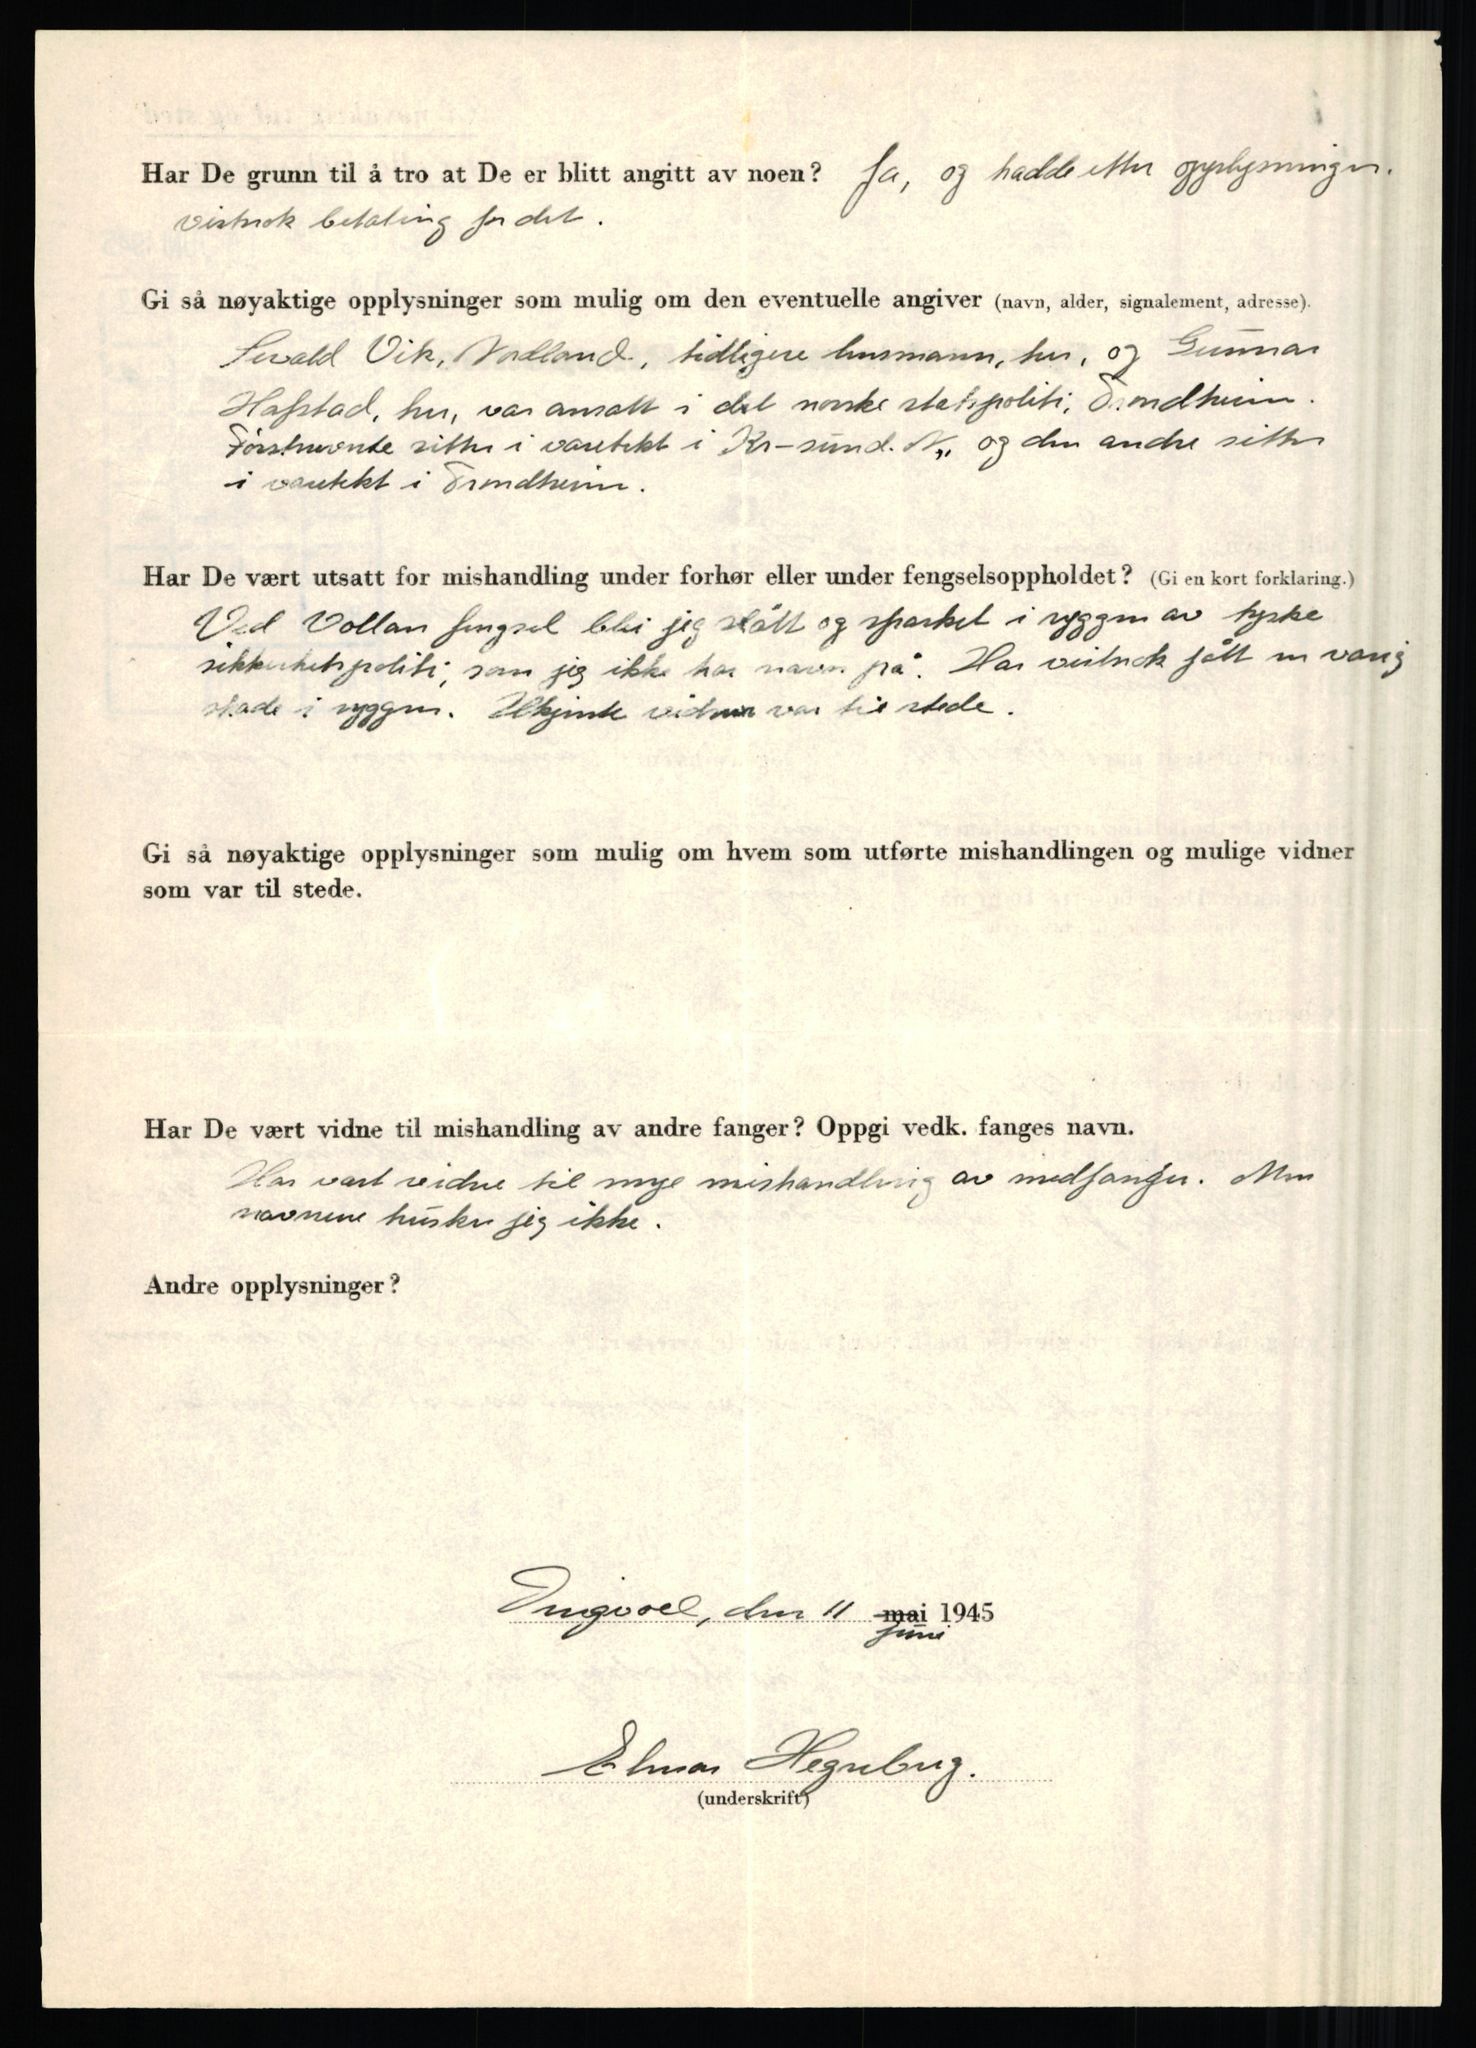 Har De grunn til å tro at De er blitt angitt av noen? Ja, og hadde etter opplysninger.
vistnok betaling for det.
Gi så nøyaktige opplysninger som mulig om den eventuelle angiver (navn, alder, signalement, adresse).
Sivald Vik, Nordland, tidligere husmann, her, og Gunnar
Hafstad, her, var ansatt i det norske statspoliti, Trondheim.
Førstnevnte sitter i varetekt i Kr-sund. N., og den andre sitter
i varetekt i Trondheim.
Har De vært utsatt for mishandling under forhør eller under fengselsoppholdet? (Gi en kort forklaring.)
Ved Vollan fengsel blei jeg slått og sparket i ryggen av tyske
sikkerhetspoliti, som jeg ikke har navn på. Har vistnok fått en varig
skade i ryggen. Ukjente vidner var til stede.
Gi så nøyaktige opplysninger som mulig om hvem som utførte mishandlingen og mulige vidner
som var til stede.
Har De vært vidne til mishandling av andre fanger? Oppgi vedk. fanges navn.
Har vært vidne til mye mishandling av medfanger. Men
navnene husker jeg ikke.
Andre opplysninger?
Tingvoll, den 11 mai 1945
juni
Elmar Hegerberg.
(underskrift)